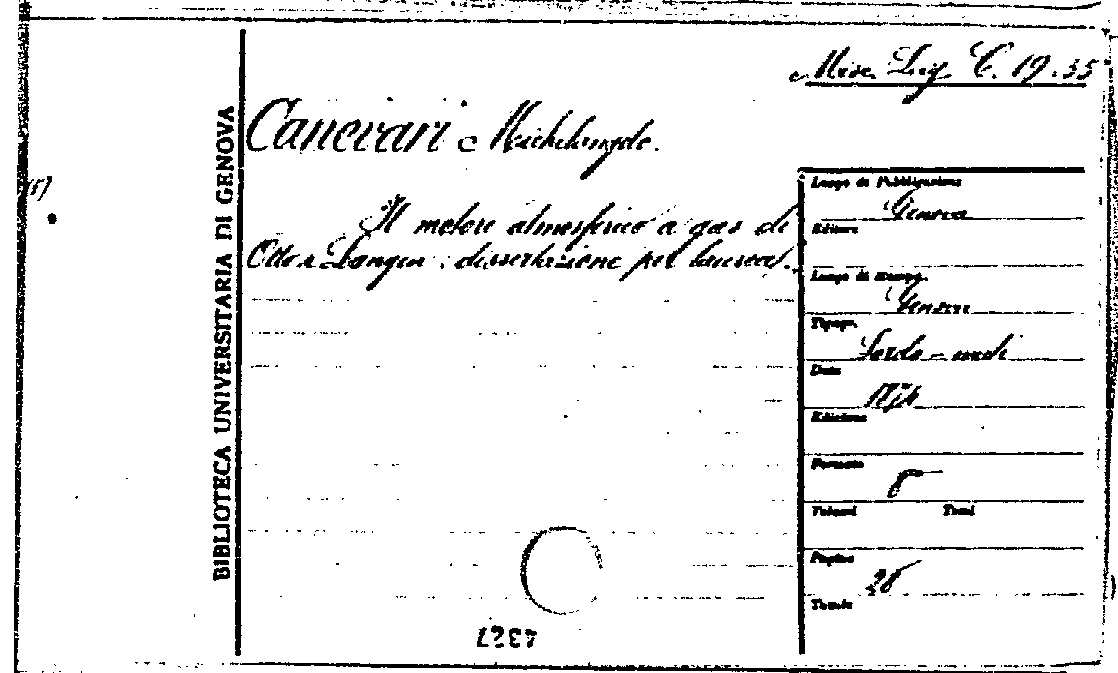 Misc. Lig. C. 19.35
Canevari Michelangelo.
Il motore atmosferico a gas di
Otto e Langen: dissertazione per laurea.
BIBLIOTECA UNIVERSITARIA DI GENOVA
Luogo di Pubblicazione
Genova
Editore
Luogo di stampa
Genova
Tipogr.
Sordo-muti
Data
Edizione
Formato
8°
Volumi Tomi
Pagine
28
Tavole